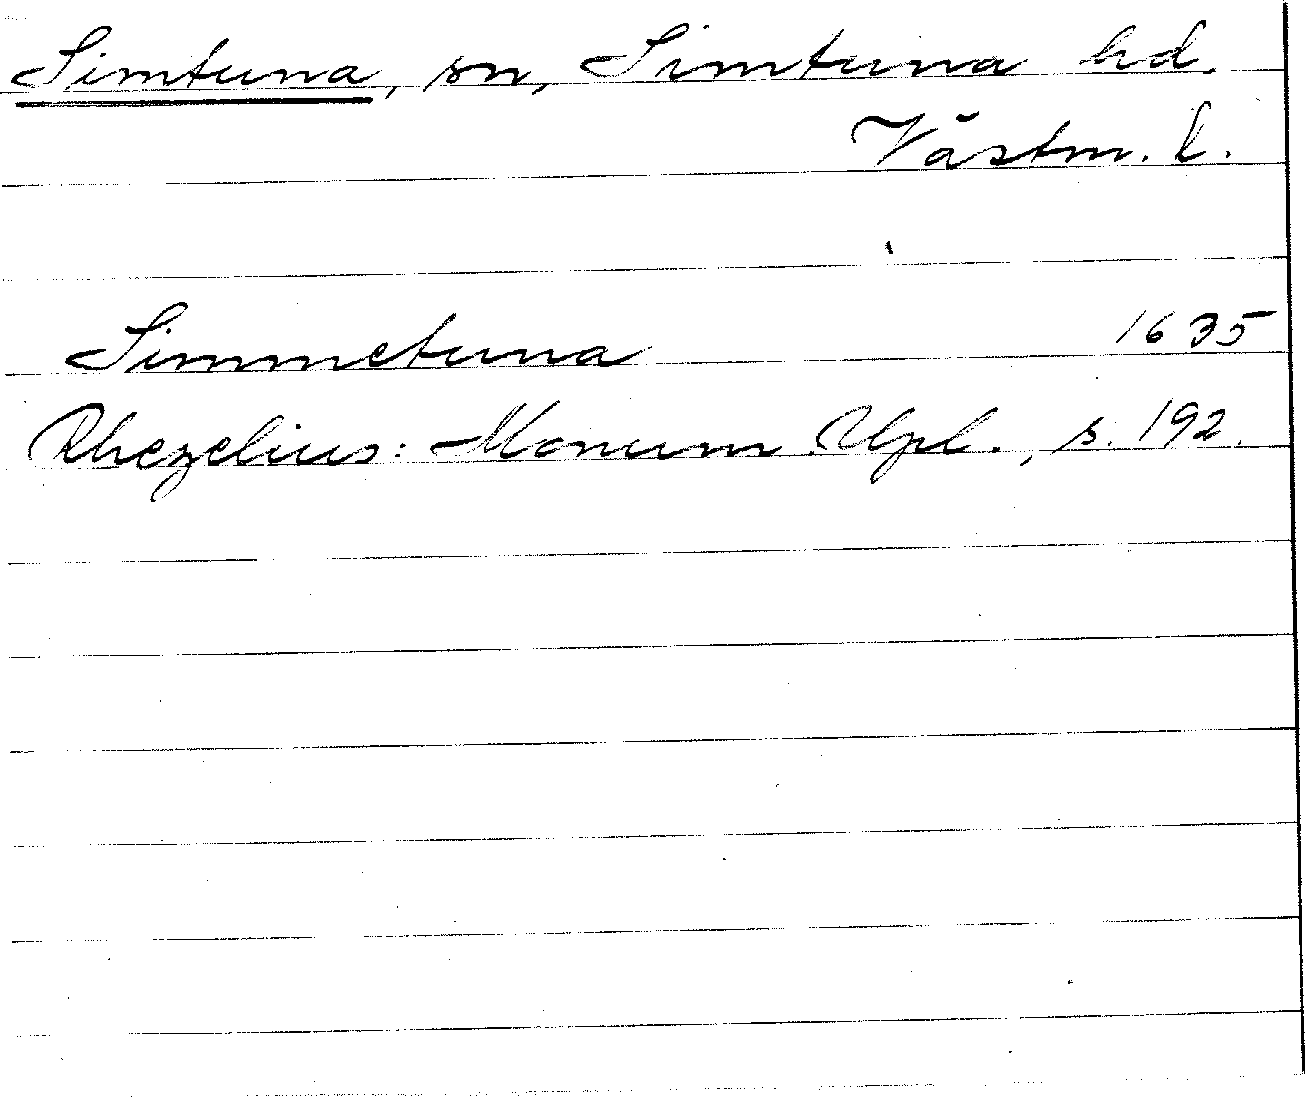 Simtuna, sn, Simtuna hd.
Västm. l.
Simmetuna 1635
Rhezelius: Monum. Upl., s. 192.